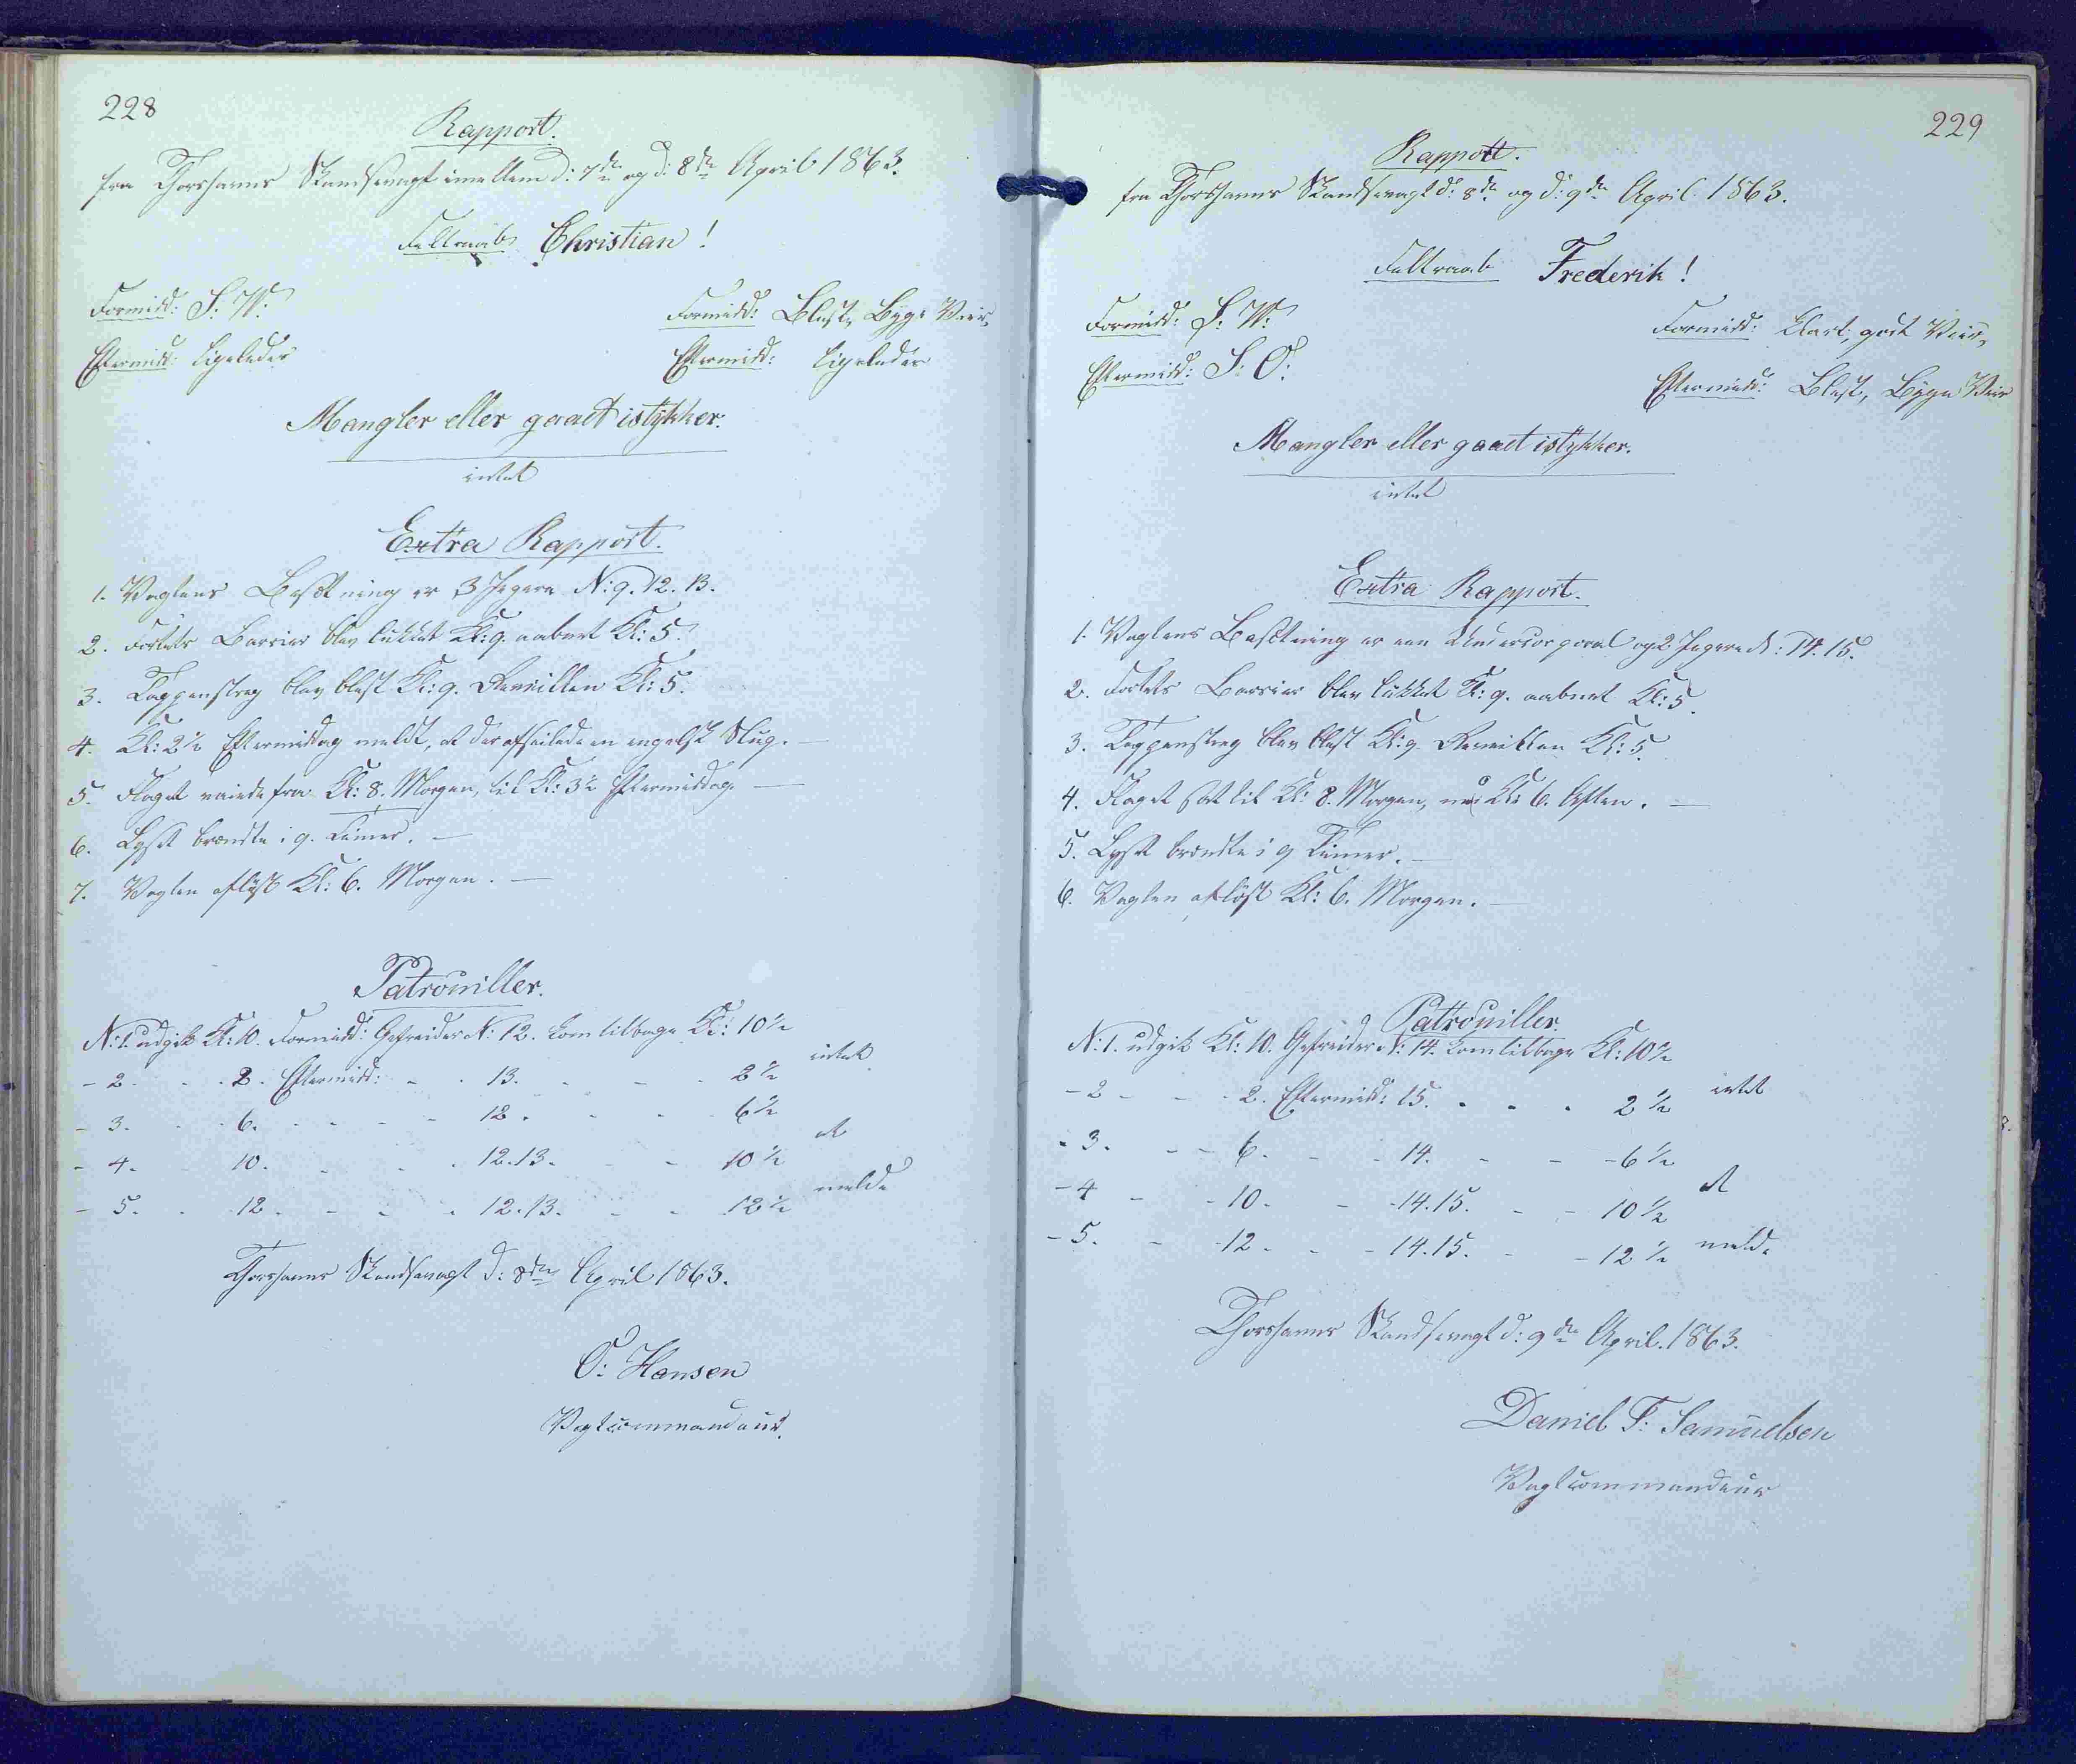 228
Rapport.
fra Thorshavns Skandsevagt imellem d: 7de og d: 8de April 1863.
Feltraab Christian!
Formidd: S: W: Formidd: Blæst, Byge Veir,
Eftermidd: Ligeledes Eftermidd: Ligeledes
Mangler eller gaaet istykker:
intet
Extra Rapport.
1. Vagtens Besætning er 3 Jægere N: 9. 12. 13.
2. Fortets Barrier blev lukket Kl: 9. aabnet Kl: 5.
3. Tappenstreg blev blæst Kl: 9. Reveillen Kl: 5.
4. Kl: 2½ Eftermiddag meldt, at der afseilede en engelsk Slup. —
5. Flaget vaiede fra Kl: 8. Morgen, til Kl: 3½ Eftermiddag. —
6. Lyset brændte i 9. Timer. —
7. Vagten afløst Kl: 6. Morgen. —
Patrouiller.
N: 1. udgik Kl: 10. Formidd: Gefreider N: 12. kom tilbage Kl: 10½
- 2. - - 2. Eftermidd: - - 13. - - - 2½ intet
- 3. - - 6. - - - - 12. - - - 6½
- 4. - - 10. - - - 12.13. - - 10½ at
- 5. - - 12. - - - 12.13. - - 12½ melde
Thorshavns Skandsevagt d: 8de April 1863.
O: Hansen
Vagtcommandeur.
229
Rapport.
fra Thorshavns Skandsevagt d: 8de og d: 9de April 1863.
Feltraab Frederik!
Formidd: S: W: Formidd: Klart, godt Veir,
Eftermidd: S: O: Eftermidd: Blæst, Byge Veir
Mangler eller gaaet istykker.
intet
Extra Rapport.
1. Vagtens Besætning er een Undercorporal og 2 Jægere N: 14. 15.
2. Fortets Barrier blev lukket Kl: 9. aabnet Kl: 5.
3. Tappenstreg blev blæst Kl: 9. Reveillen Kl: 5.
4. Flaget sat til Kl: 8. Morgen, ned Kl: 6. Aften. —
5. Lyset brændte i 9 Timer. —
6. Vagten afløst Kl: 6. Morgen. —
Patrouiller.
N: 1. udgik Kl: 10. Gefreider N: 14. kom tilbage Kl: 10½
- 2 - - - 2. Eftermidd: 15. - - - 2½ intet
- 3. - - 6. - - 14. - - - 6½
- 4 - - 10. - - 14.15. - - 10½ at
- 5. - - 12. - - 14.15. - - 12½ melde
Thorshavns Skandsevagt d: 9de April. 1863.
Daniel F: Samuelsen
Vagtcommandeur